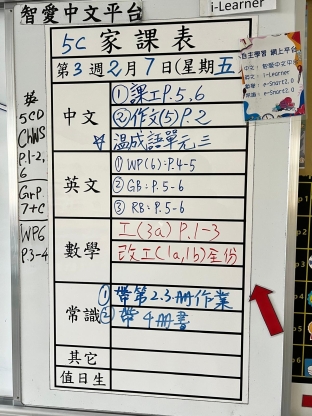 智愛中文平台
i-Learner
5C 家課表
自主學習 網上平台
中文：智愛中文平台
英文：i-Learner
數學：e-Smart2.0
常識：e-Smart2.0
第3週2月7日(星期五
中文
①課工P.5,6
②作文(5)P.2
温成語單元三
英文
①WP(6):P.4-5
②GB:P.5-6
③RB:P.5-6
數學
工(3a)P.1-3
改工(1a,1b)全份
常識
①帶第2.3冊作業
②帶4冊書
其它
值日生
英
5CD
ChWS
P.1-2,
6
GrP
7+C
WP6
P.3-4